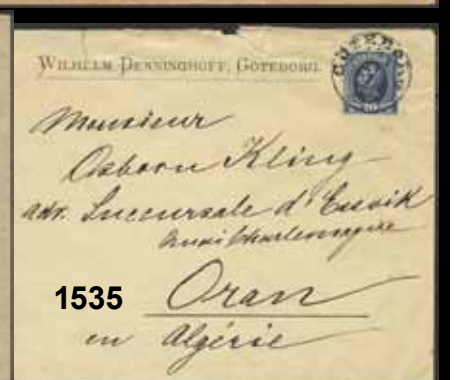 WILHELM DENNINGHOFF, GÖTEBORG.
GÖTEBORG
Monsieur
Osborn Kling
adr. Succursale d'
Oran
1535
en Algérie